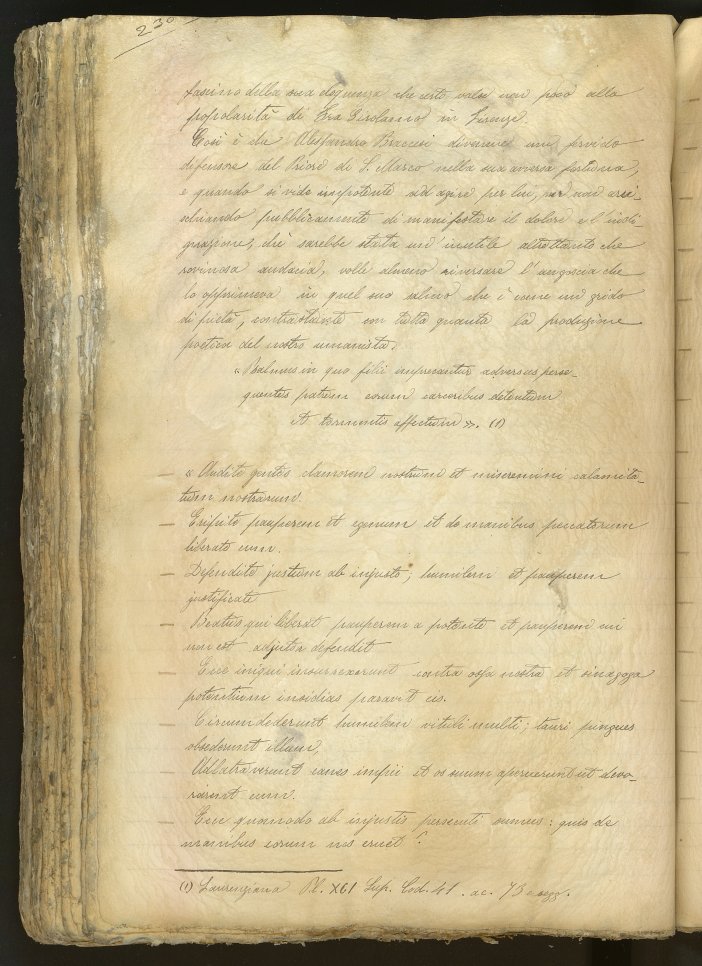 230
fascino della sua eloquenza che certo valse non poco alla
popolarità di Fra Girolamo in Firenze.
Così è che Alessandro Braccesi divenne un fervido
difensore del Priore di S. Marco nella sua avversa fortuna,
e quando si vide impotente ad agire per lui, pur non arri-
schiando pubblicamente di manifestare il dolore e l'indi
gnazione, chè sarebbe stata un'inutile altrettanto che
rovinosa audacia, volle almeno riversare l'angoscia che
lo opprimeva in quel suo salmo che è come un grido
di pietà, contrastante con tutta quanta la produzione
poetica del nostro umanista.
« Psalmus in quo filii imprecantur adversus perse-
quentes patrem eorum carceribus detentum
et tormentis affectum ». (1)
— « Audite gentes clamorem nostrum et miseremini calamita-
tum nostrarum.
— Eripite pauperem et egenum et de manibus peccatorum
liberate eum.
— Defendite justum ab injusto; humilem et pauperem
justificate
— Beatus qui liberat pauperem a potente et pauperem cui
non est adjutor defendit
— Ecce iniqui insurrexerunt contra ossa nostra et sinagoga
potentium insidias paravit eis.
— Circumdederunt humilem vituli multi; tauri pingues
obsederunt illum.
— Adlatraverunt canes impii et os suum aperuerunt ut devo-
rarent eum.
— Ecce quomodo ab injustis persecuti sumus: quis de
manibus eorum nos eruet?
(1) Laurenziana Pl. XCI Sup. Cod. 41. ac. 73 e segg.